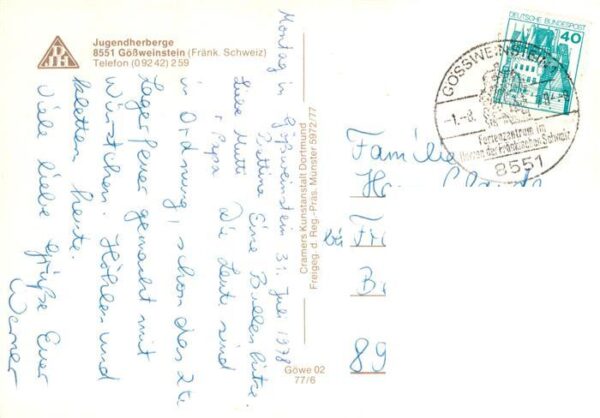 Jugendherberge
8551 Gößweinstein (Fränk. Schweiz)
Telefon (0 92 42) 2 59
Montag in Gößweinstein 31. Juli 1978
Bettina Eine Bullenhitze.
Liebe Mutti
+ Papa Die Leute sind
in Ordnung, schon das 2te
Lagerfeuer gemacht mit
Würstchen. Höhlen und
klettern heute.
Viele liebe Grüße Euer
Werner
Cramers Kunstanstalt Dortmund
Freigeg. d. Reg.-Präs. Münster 5972/77
Göwe 02
77/6
DEUTSCHE BUNDESPOST
40
GÖSSWEINSTEIN
-1.-8.
Ferienzentrum im
Herzen der Fränkischen Schweiz
8551
Familie
bei
89